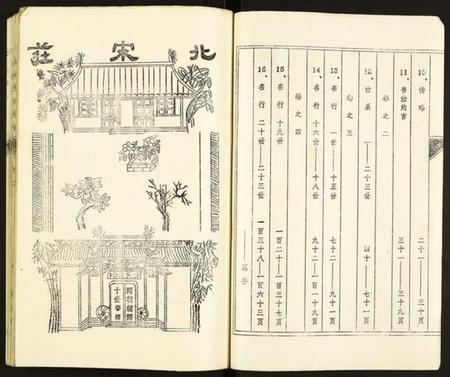 10 传略 二十一——三十页
11 书法约言 三十一——三十九页
卷之二
12 世系 一——二十三世 四十——七十一页
卷之三
13 名行 一世——十五世 七十二——九十一页
14 名行 十六世——十八世 九十二——一百十九页
卷之四
15 名行 十九世 一百二十——一百三十七页
16 名行 二十世——二十三世 一百三十八——一百六十三页
北宋莊
十世